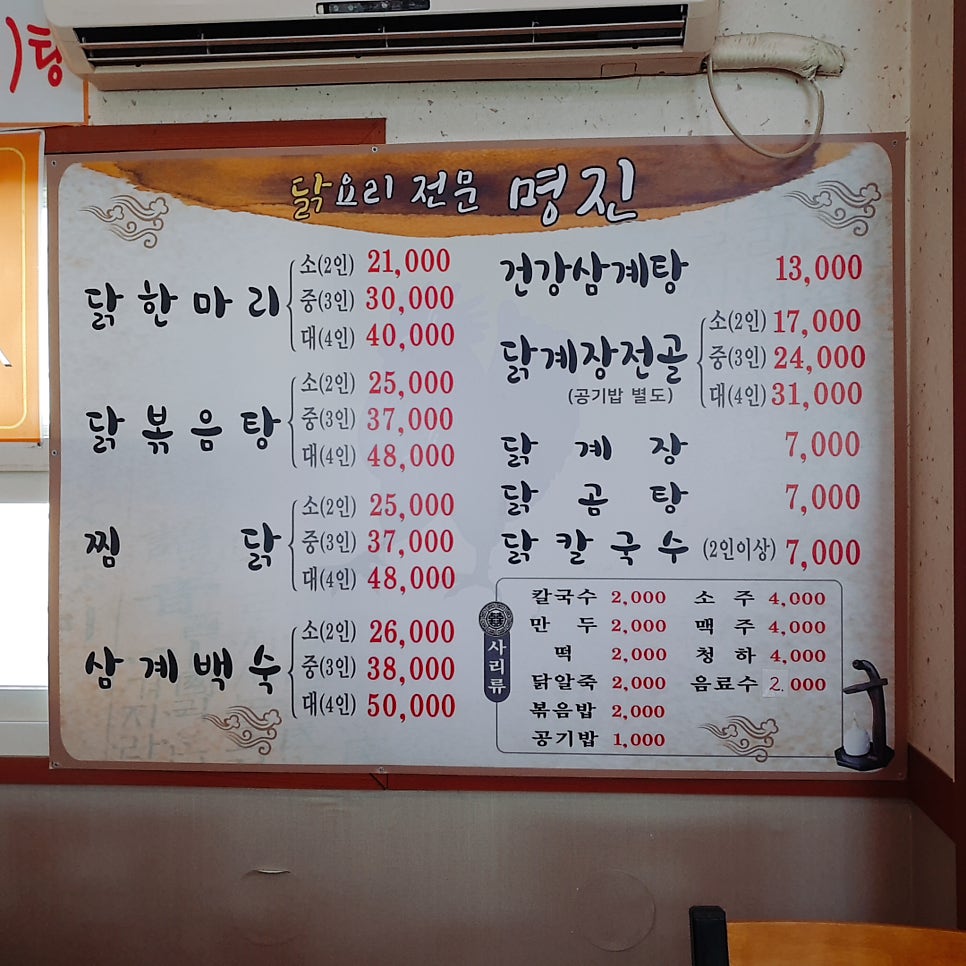 탕
닭요리 전문 명진
닭한마리
소(2인) 21,000
중(3인) 30,000
대(4인) 40,000
닭볶음탕
소(2인) 25,000
중(3인) 37,000
대(4인) 48,000
찜닭
소(2인) 25,000
중(3인) 37,000
대(4인) 48,000
삼계백숙
소(2인) 26,000
중(3인) 38,000
대(4인) 50,000
건강삼계탕 13,000
닭계장전골
(공기밥 별도)
소(2인) 17,000
중(3인) 24,000
대(4인) 31,000
닭계장 7,000
닭곰탕 7,000
닭칼국수 (2인이상) 7,000
사리류
칼국수 2,000
만두 2,000
떡 2,000
닭알죽 2,000
볶음밥 2,000
공기밥 1,000
소주 4,000
맥주 4,000
청하 4,000
음료수 2.000